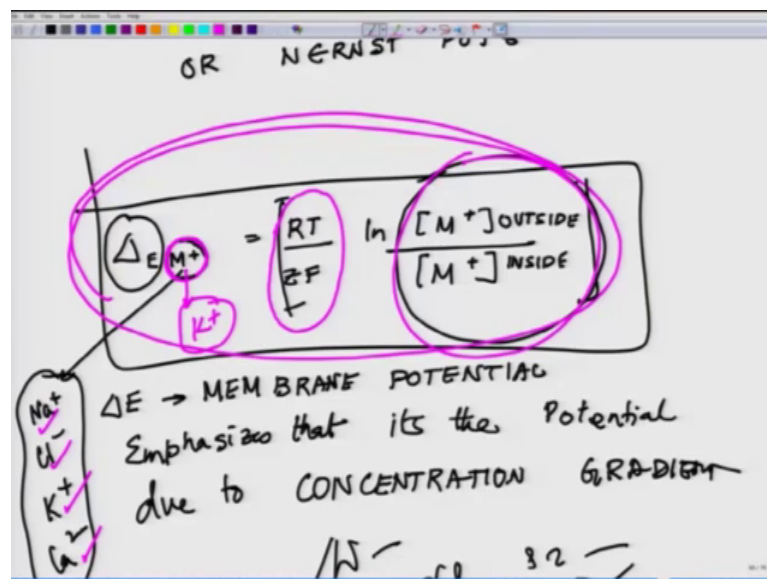 OR NERNST
ΔE M+ = RT/ZF ln [M+] OUTSIDE / [M+] INSIDE
K+
Na+
Cl-
K+
Ca2-
ΔE → MEMBRANE POTENTIAL
Emphasizes that its the Potential
due to CONCENTRATION GRADIENT